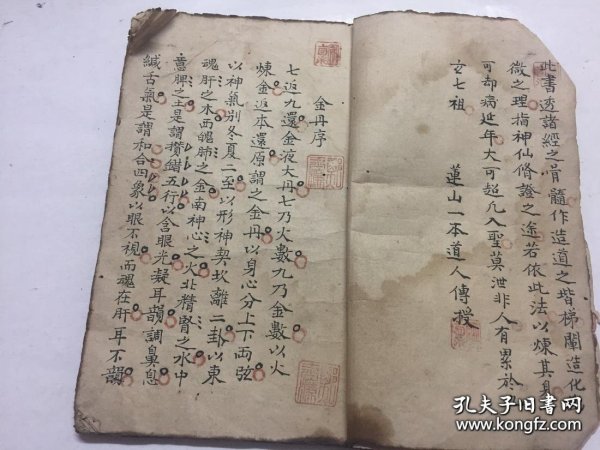 此書透諸經之骨髓作造道之楷梯闡造化
微之理指神仙脩證之途若依此法以煉其身
可却病延年大可超凡入聖莫泄非人有累於
玄七祖 蓮山一本道人傳授
金丹序
七返九還金液大丹七乃火數九乃金數以火
煉金返本還原謂之金丹以身心分上下両弦
以神氣别冬夏二至以形神契坎離二卦以東
魂肝之木西魄肺之金南神心之火北精腎之水中
意脾之土是謂攢簇五行以含眼光凝耳韻調鼻息
緘舌氣是謂和合四象以眼不視而魂在肝耳不韻
孔夫子旧书网
www.kongfz.com